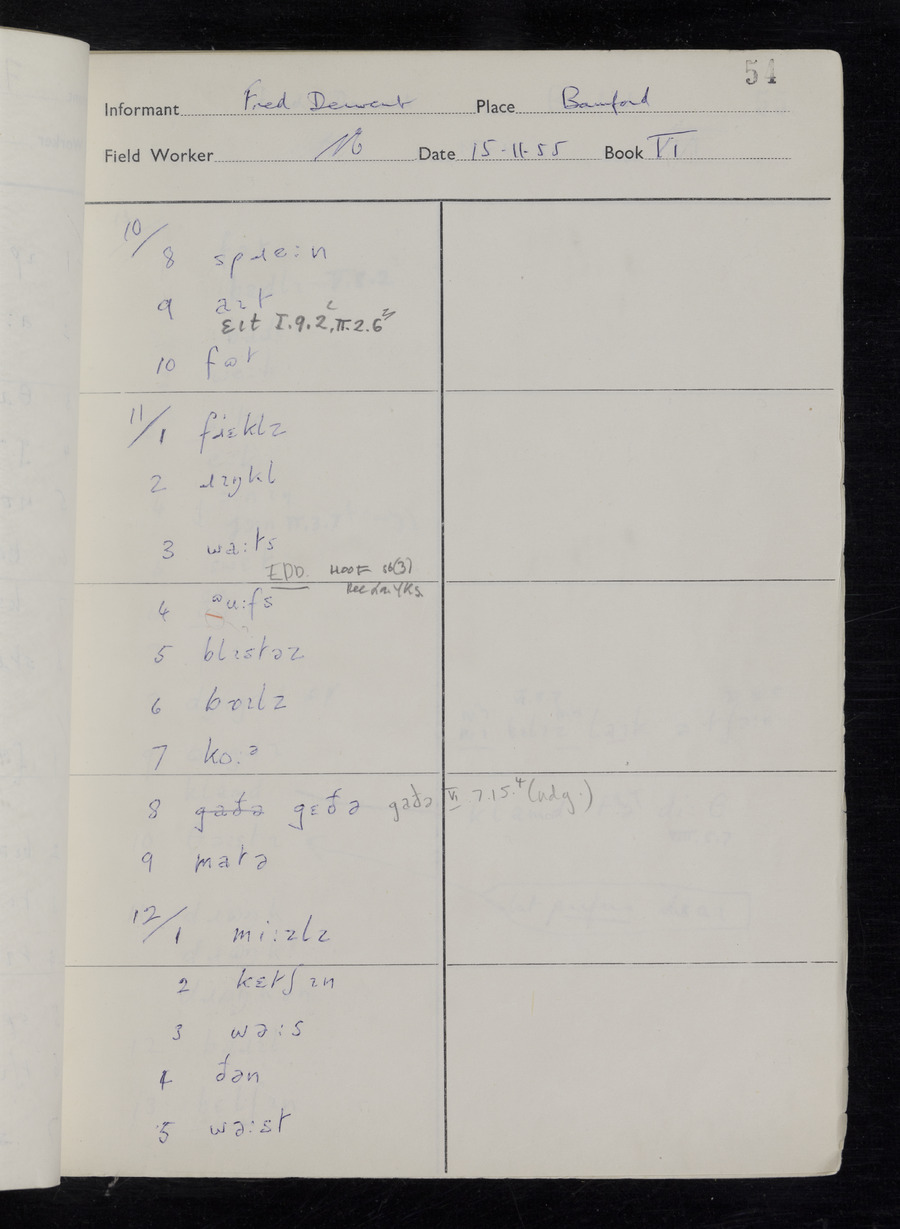 54
Informant Fred Derwent Place Bamford
Field Worker Date 15-11-55 Book VI
10/
8 spɹɛ:n
9 aɪt
ɛɪt I.9.2, II.2.6
10 fat
11/1 fɹɛklz
2
3 wa:ts
EDD. HOOF sb(3)
4 u:fs
5 blɪstəz
6 bɒɪlz
7 ko:ə
8 gaðə gɛðə gaðə VI 7.15.4 (ndg.)
9 matə
12/1 mi:zlz
2 kɛtʃɪn
3 wə:s
4 ðən
5 wə:st